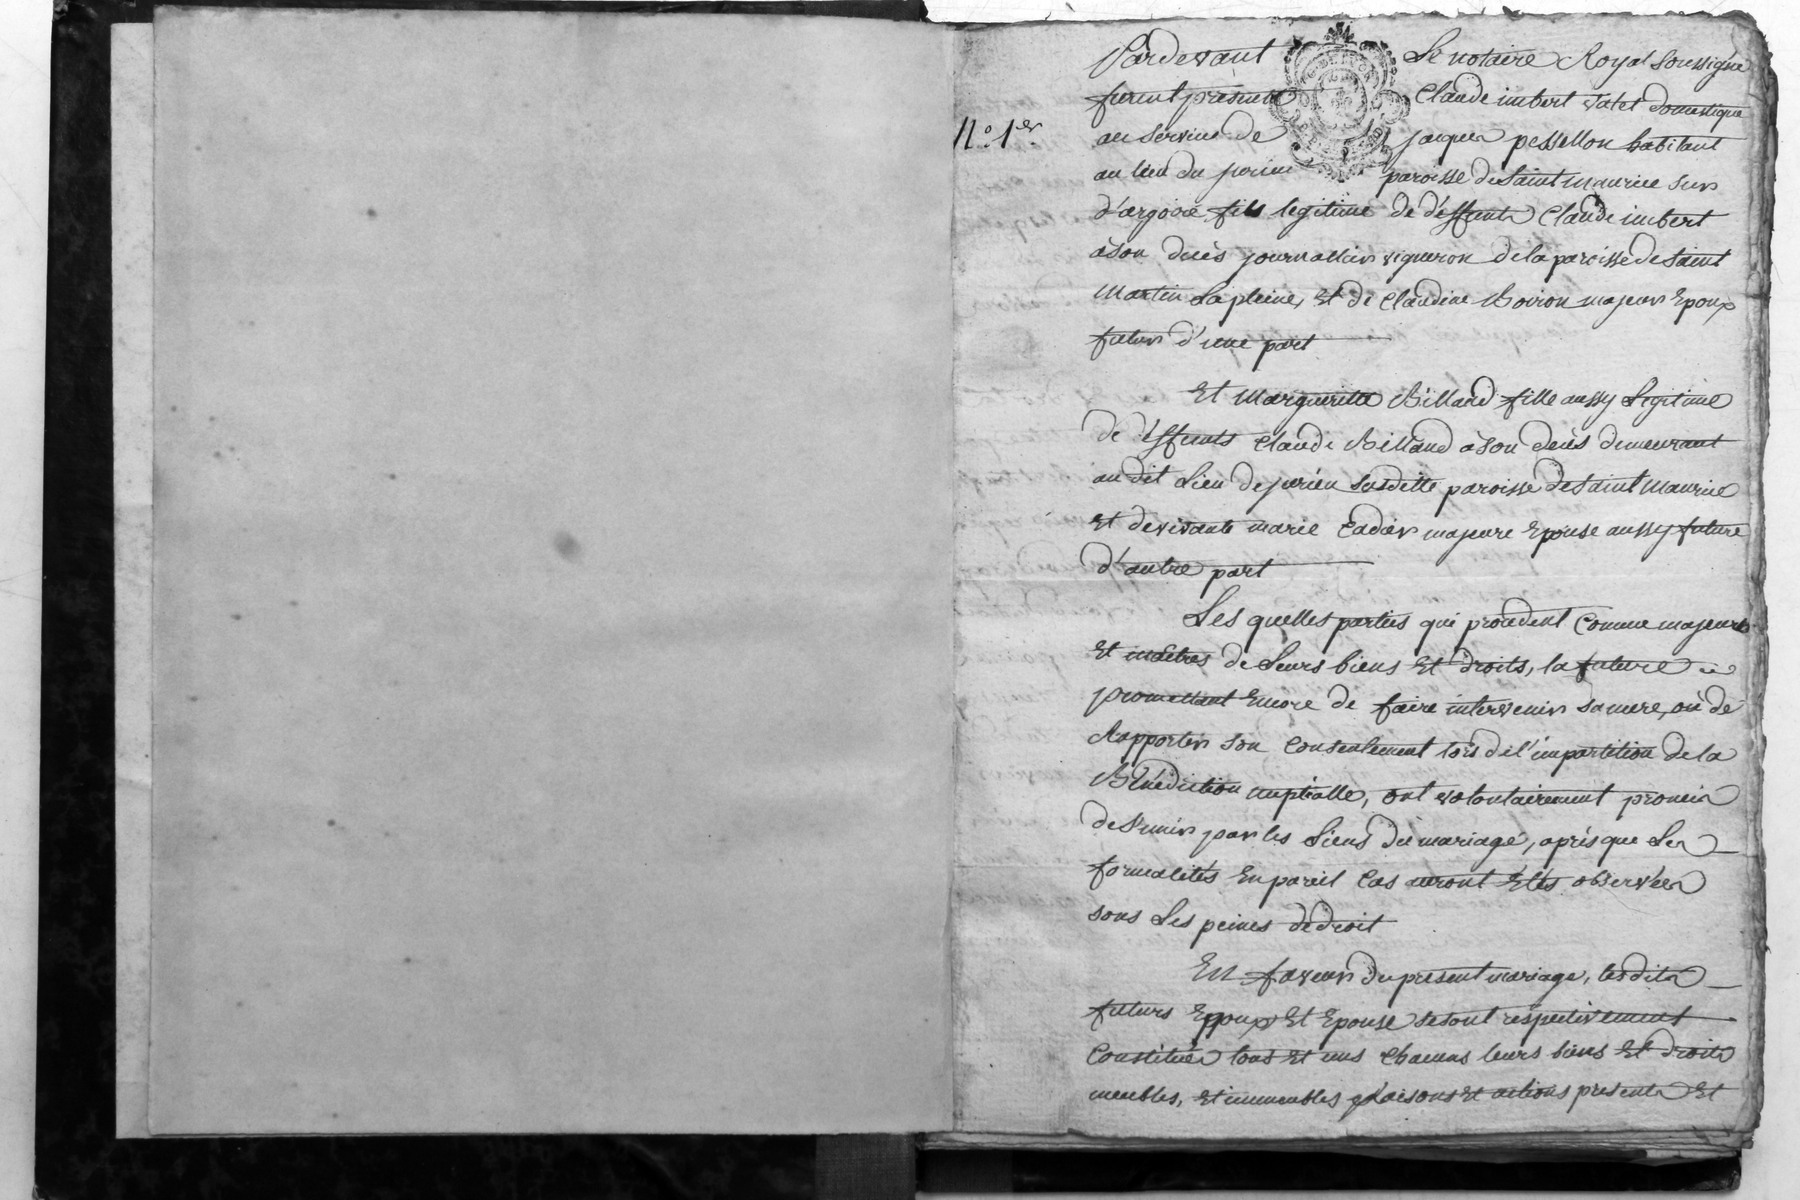 N.° 1.er
Pardevant Le notaire Royal soussigné
furent présents Claude imbert valet domestique
au service de jacques pessellon habitant
au lieu du jurieu paroisse de Saint Maurice sur
d'argoire fils legitime de déffunts Claude imbert
a son decès journallier vigneron de la paroisse de Saint
Martin Lapleine, et de Claudine Boiron majeur Epoux
futur d'une part
Et Margueritte Billard fille aussy Legitime
de déffunts Claude Billard a son decès demeurant
au dit Lieu de jurieu susditte paroisse de Saint Maurice
et de vivante marie Cadier majeure Epouse aussy future
d'autre part
Les quelles parties qui procedent comme majeurs
et maitres de Leurs biens et droits, la future
promettant Encore de faire intervenir sa mere, ou de
Rapporter son Consentement lors de l'impartition de la
Bénédiction nuptialle, ont volontairement promis
de s'unir par les Liens du mariage, après que Les
formalités En pareil Cas auront Etés observées
sous Les peines de droit
En faveur du present mariage, lesdits
futurs Epoux Et Epouse se sont respectivement
Constitués tous et uns chacuns leurs biens et droits
meubles, et immeubles raisons et actions presents et